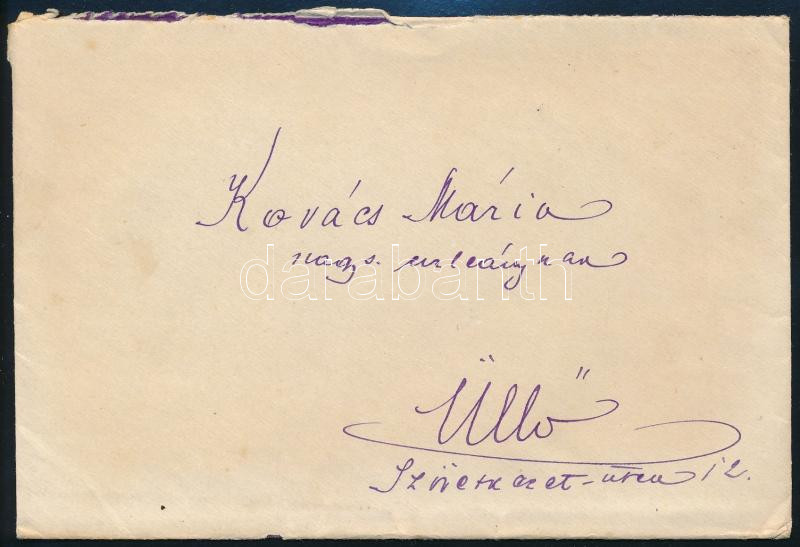 Kovács Mária
nags. urleánynak
darabanth
Üllő
Szövetkezet-utca 12.